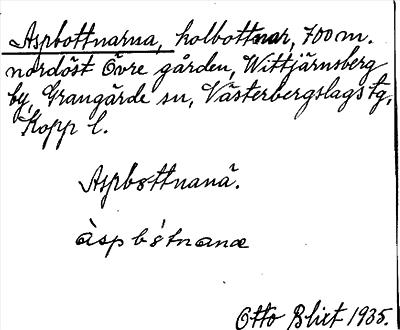 Aspbottnarna, holbottnar, 700 m.
nordöst Övre gården, Wittjärnsberg
by, Grangärde sn, Västerbergslags tg,
Kopp l.
Aspbottnanä.
àspbótnanæ
Otto Blixt 1935.